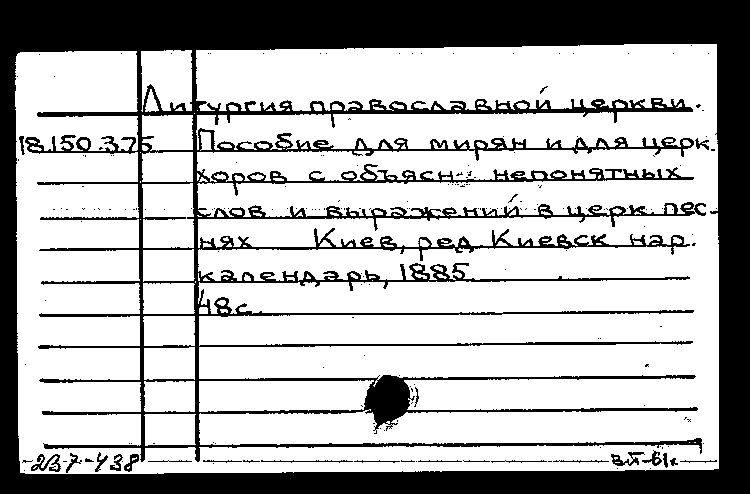 Литургия православной церкви.
18.150.3.75 Пособие для мирян и для церк.
хоров с объясн. непонятных
слов и выражений в церк. пес-
нях Киев, ред. Киевск нар.
календарь, 1885
48с.
237-438